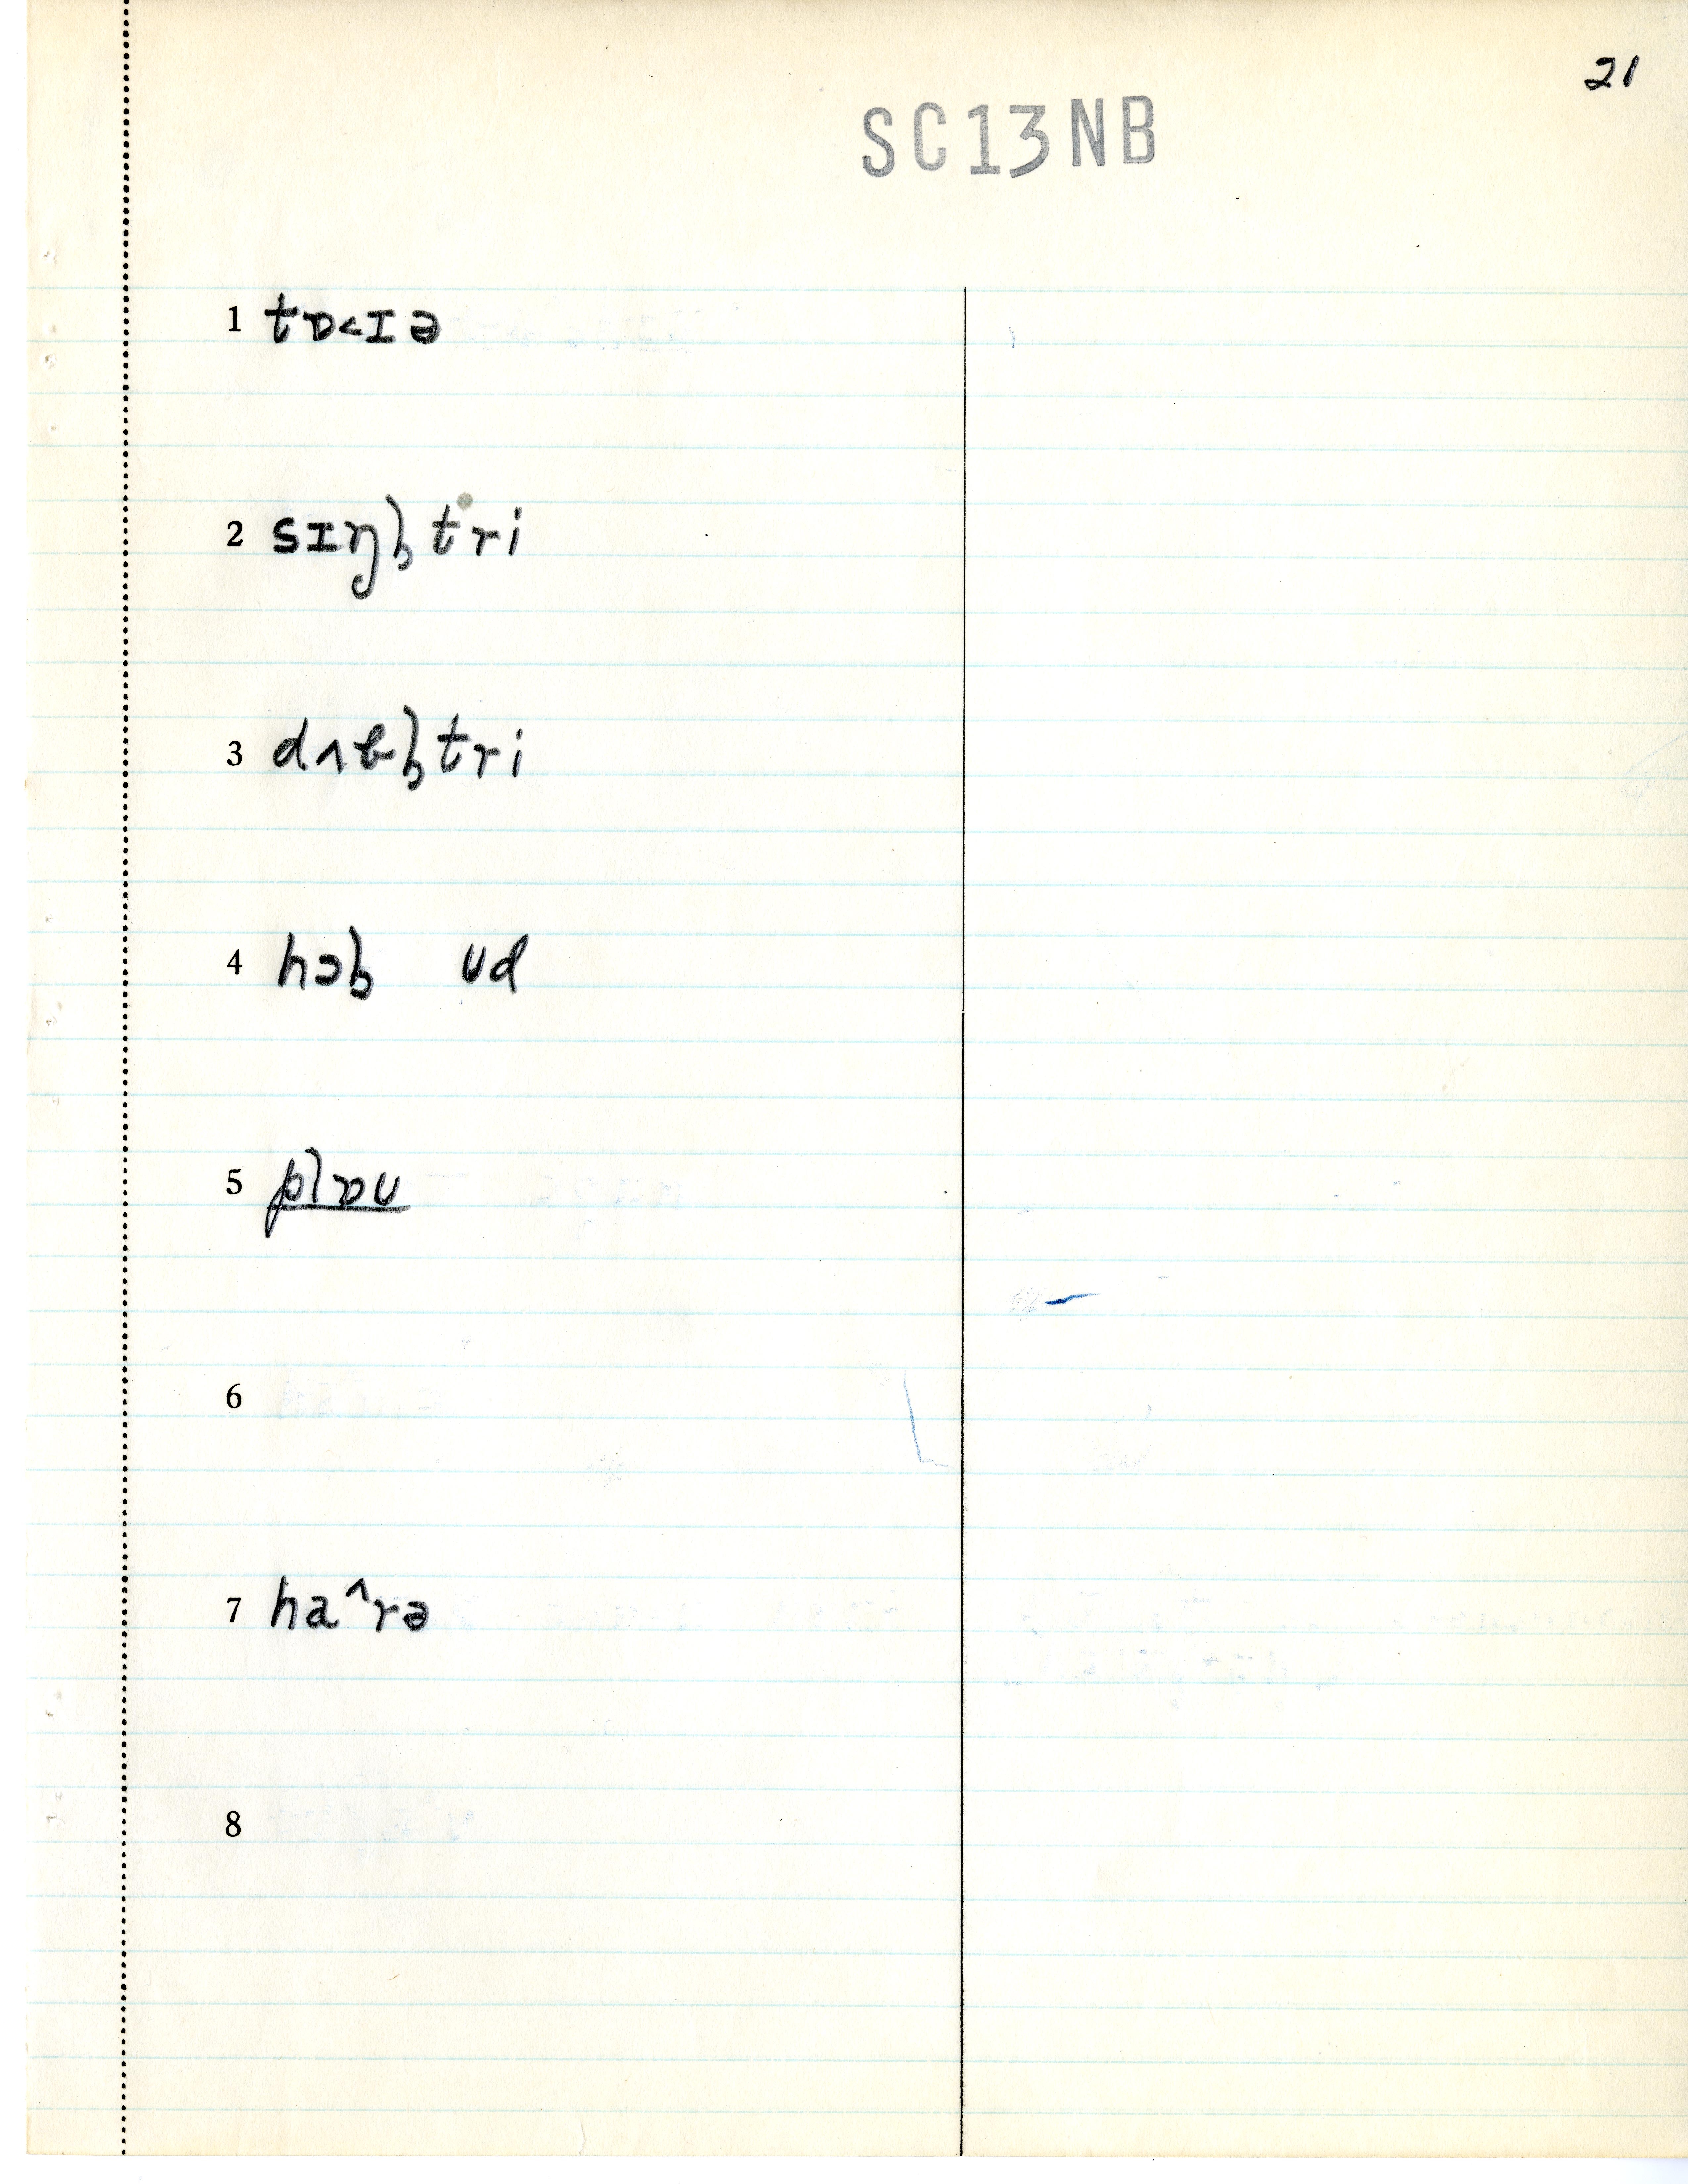 21
SC13NB
1 tɒ<ɪə
2 sɪŋl̩tri
3 dʌbl̩tri
4 hɔl̩ ʊd
5 plɒʊ
6
7 ha^rə
8